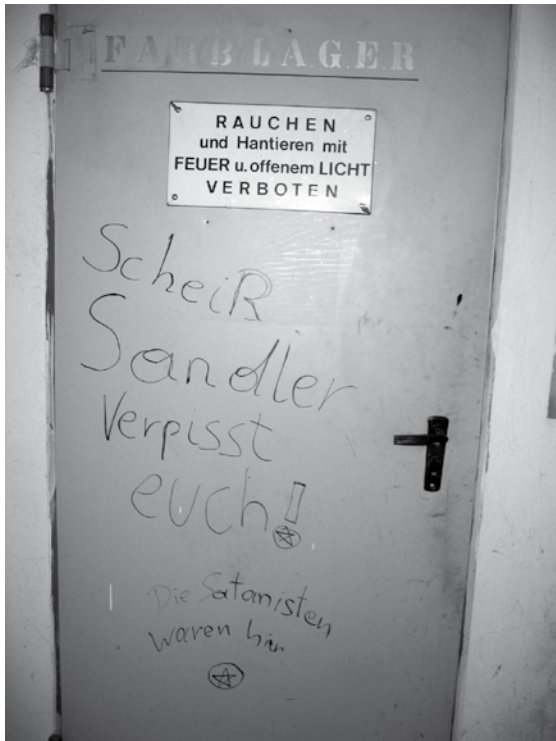 FARBLAGER
RAUCHEN
und Hantieren mit
FEUER u. offenem LICHT
VERBOTEN
Scheiß
Sandler
Verpisst
euch!
Die Satanisten
waren hier